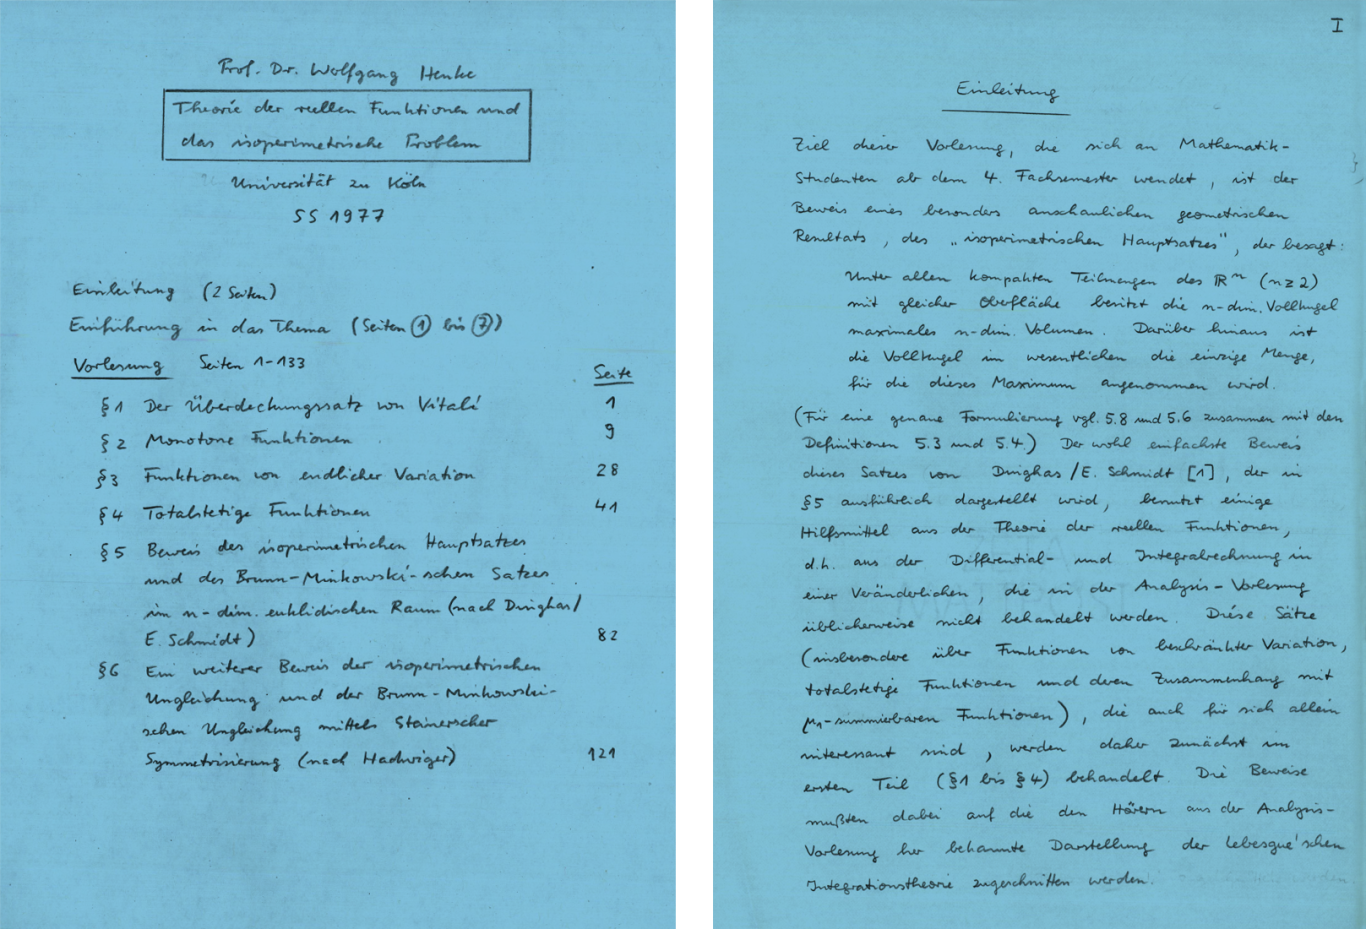 Prof. Dr. Wolfgang Henke
Theorie der reellen Funktionen und
das isoperimetrische Problem
Universität zu Köln
SS 1977
Einleitung (2 Seiten)
Einführung in das Thema (Seiten ① bis ⑦)
Vorlesung Seiten 1-133
Seite
§1 Der Überdeckungssatz von Vitali 1
§2 Monotone Funktionen 9
§3 Funktionen von endlicher Variation 28
§4 Totalstetige Funktionen 41
§5 Beweis des isoperimetrischen Hauptsatzes
und des Brunn-Minkowski-schen Satzes
im n-dim. euklidischen Raum (nach Dinghas/
E. Schmidt) 82
§6 Ein weiterer Beweis der isoperimetrischen
Ungleichung und der Brunn-Minkowski-
schen Ungleichung mittels Steinerscher
Symmetrisierung (nach Hadwiger) 121
I
Einleitung
Ziel dieser Vorlesung, die sich an Mathematik-
Studenten ab dem 4. Fachsemester wendet, ist der
Beweis eines besonders anschaulichen geometrischen
Resultats, des „isoperimetrischen Hauptsatzes", der besagt:
Unter allen kompakten Teilmengen des ℝⁿ (n≥2)
mit gleicher Oberfläche besitzt die n-dim. Vollkugel
maximales n-dim. Volumen. Darüber hinaus ist
die Vollkugel im wesentlichen die einzige Menge,
für die dieses Maximum angenommen wird.
(Für eine genaue Formulierung vgl. 5.8 und 5.6 zusammen mit den
Definitionen 5.3 und 5.4.) Der wohl einfachste Beweis
dieses Satzes von Dinghas/E. Schmidt [1], der in
§5 ausführlich dargestellt wird, benutzt einige
Hilfsmittel aus der Theorie der reellen Funktionen,
d.h. aus der Differential- und Integralrechnung in
einer Veränderlichen, die in der Analysis-Vorlesung
üblicherweise nicht behandelt werden. Diese Sätze
(insbesondere über Funktionen von beschränkter Variation,
totalstetige Funktionen und deren Zusammenhang mit
μ₁-summierbaren Funktionen), die auch für sich allein
interessant sind, werden daher zunächst im
ersten Teil (§1 bis §4) behandelt. Die Beweise
mußten dabei auf die den Hörern aus der Analysis-
Vorlesung her bekannte Darstellung der Lebesgue'schen
Integrationstheorie zugeschnitten werden.